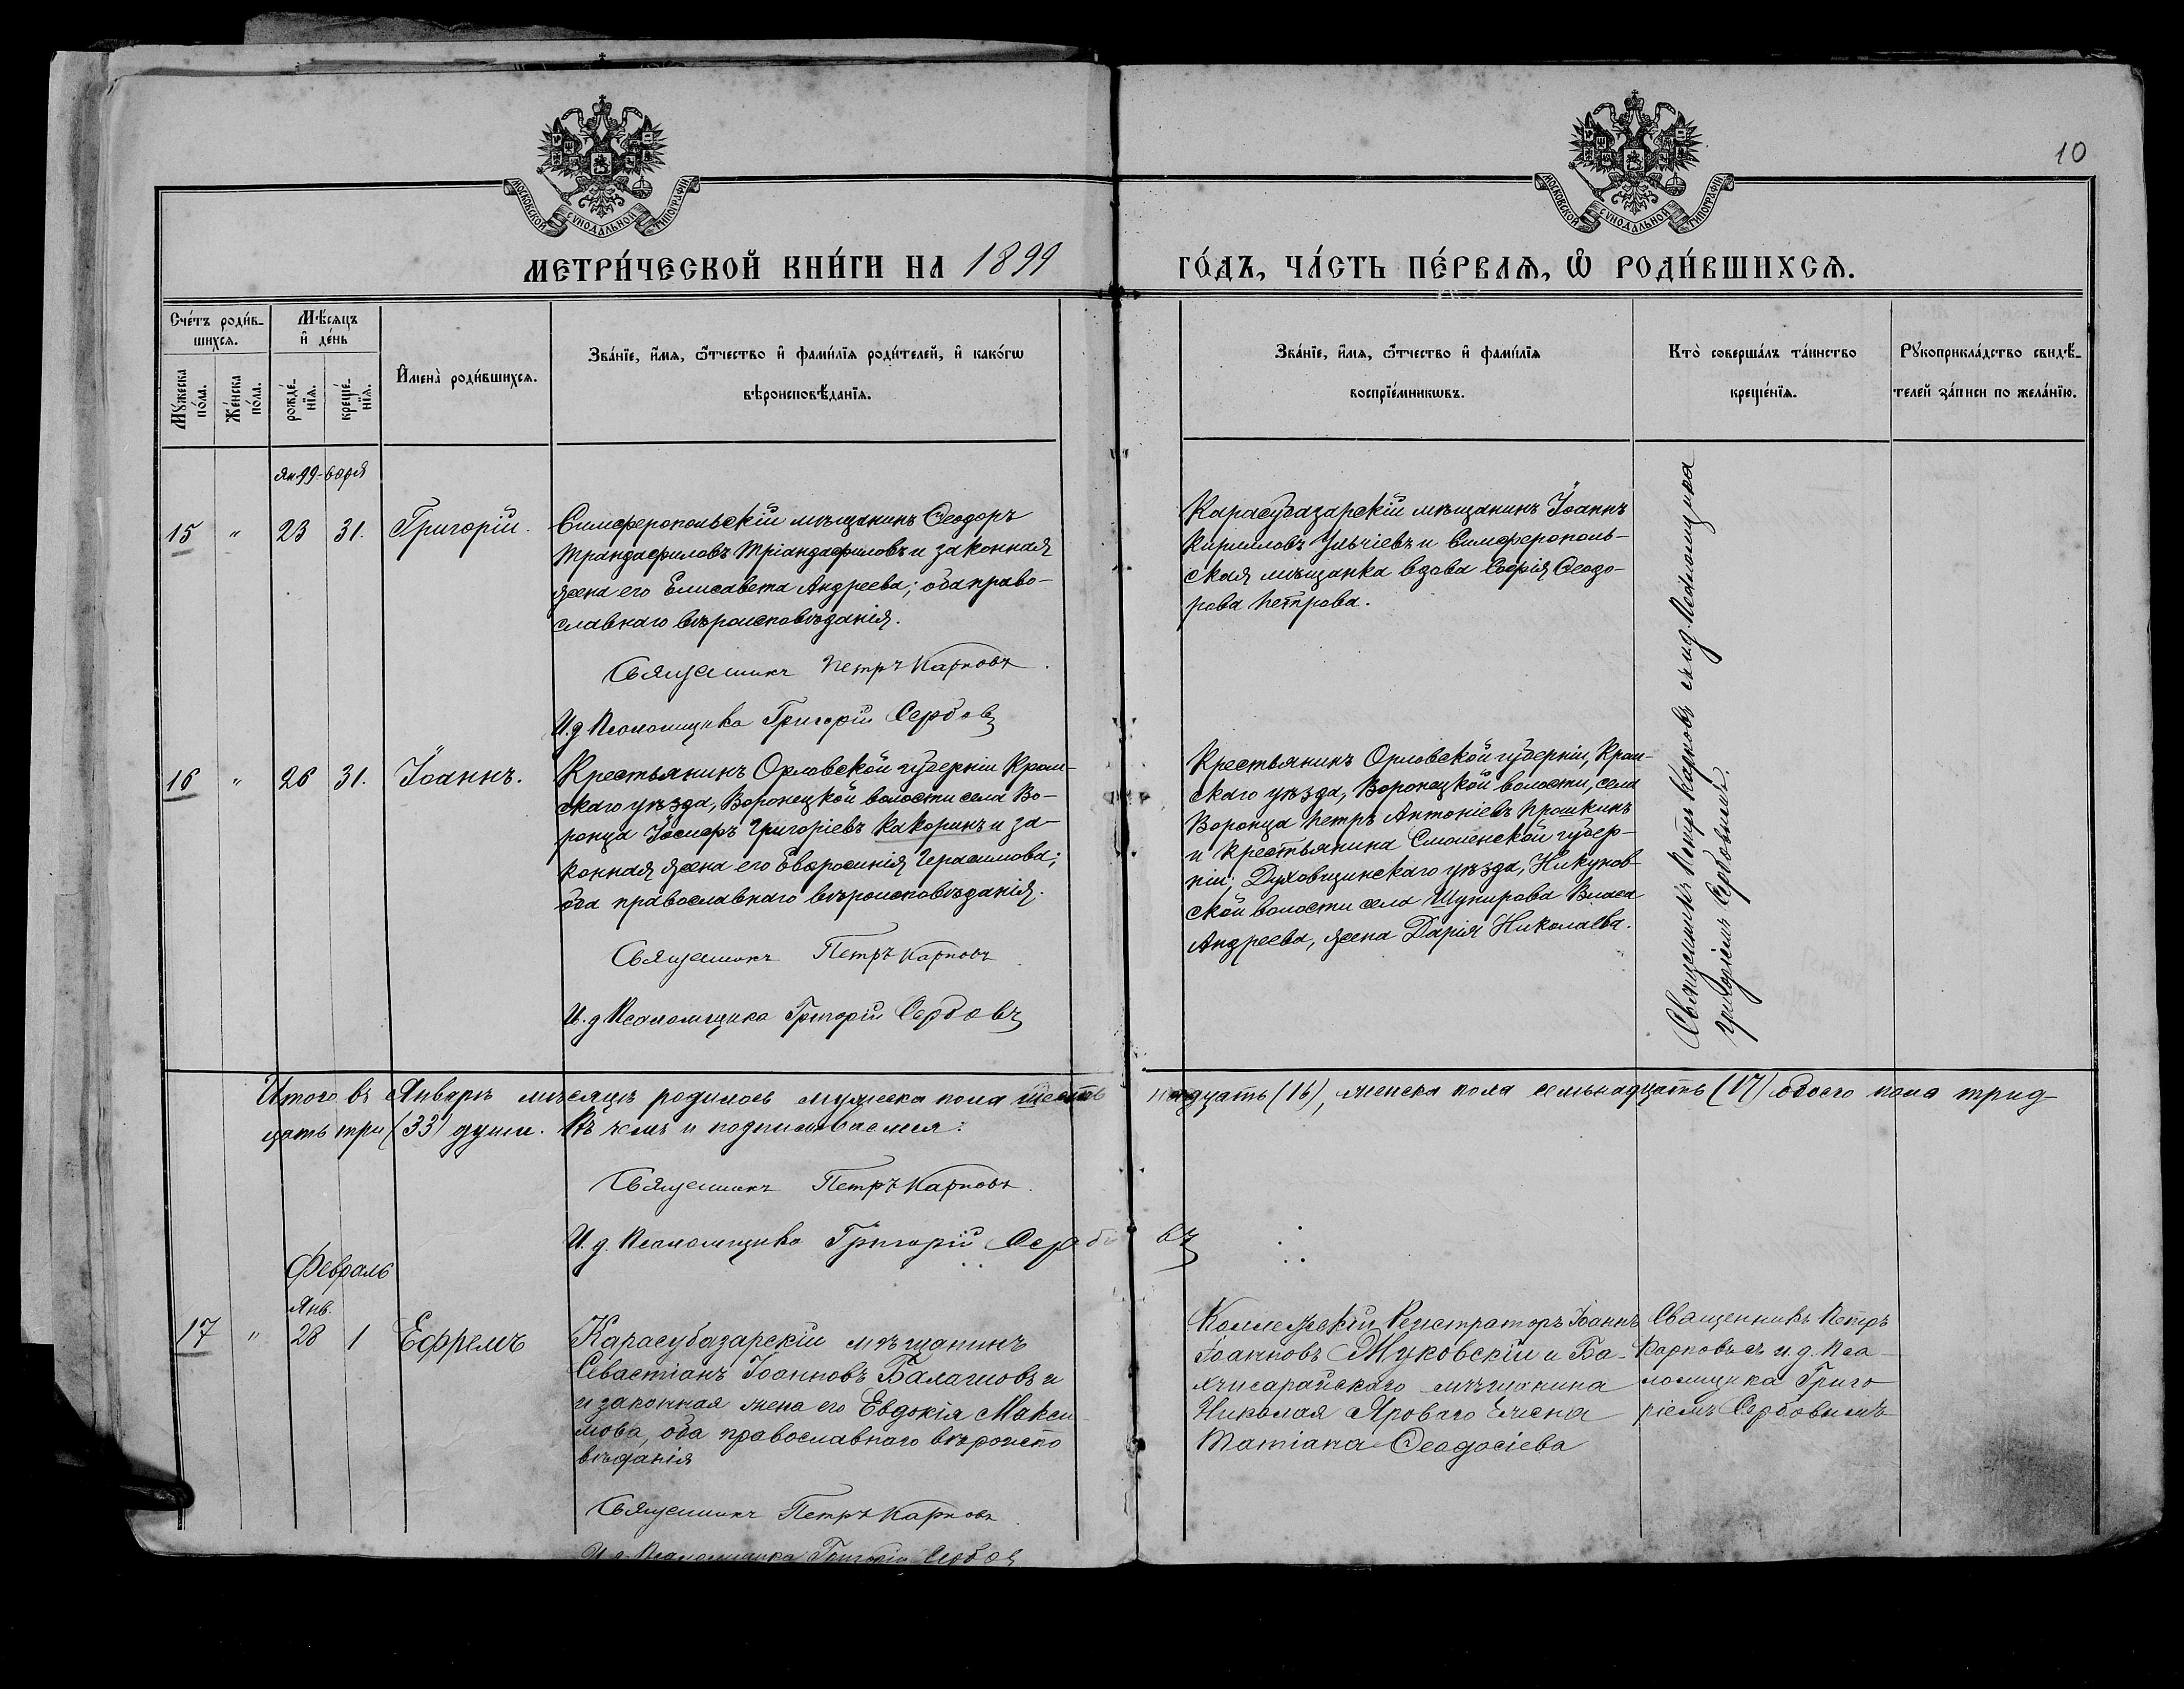 10
МОСКОВСКОЙ СУНОДАЛЬНОЙ ТИПОГРАФІИ
МОСКОВСКОЙ СУНОДАЛЬНОЙ ТИПОГРАФІИ
МЕТРИ́ЧЕСКОЙ КНИ́ГИ НА 1899
ГО́ДЪ, ЧА́СТЬ ПЕ́РВАѦ, Ѡ҆ РОДИ́ВШИХСѦ.
Сче́тъ роди́в-
шихсѧ.
Мꙋжеска
по́ла.
Же́нска
по́ла.
Мѣ́сѧцъ
и҆ де́нь
рожде́-
нїѧ.
креще́-
нїѧ.
И҆мена̀ роди́вшихсѧ.
Зва́нїе, и҆́мѧ, ѻ҆́тчество и҆ фами́лїѧ роди́телей, и҆ како́гѡ
вѣроисповѣ́данїѧ.
Зва́нїе, и҆́мѧ, ѻ҆́тчество и҆ фами́лїѧ
воспрїе́мникѡвъ.
Кто̀ соверша́лъ та́инство
креще́нїѧ.
Рꙋкоприкла́дство свидѣ́-
телей за́писи по жела́нїю.
15 " 23 31. Григорій.
Симферопольскій мѣщанинъ Ѳеодоръ
Трандафиловъ Тріандафиловъ и законная
жена его Елисавета Андреева; оба право-
славнаго вѣроисповѣданія.
Священникъ Петръ Карповъ.
И.д. Псаломщика Григорій Сербовъ
Карасубазарскій мѣщанинъ Іоаннъ
Кирилловъ Ильчіевъ и Симферополь-
ская мѣщанка вдова Софія Ѳеодо-
рова Петрова.
16 " 26 31. Іоаннъ.
Крестьянинъ Орловской губерніи Кром-
скаго уѣзда, Воронецкой волости села Во-
ронца Іосифъ Григоріевъ Какоринъ и за-
конная жена его Евфросинія Герасимова;
оба православнаго вѣроисповѣданія.
Священникъ Петръ Карповъ
И.д. Псаломщика Григорій Сербовъ
Крестьянинъ Орловской губерніи, Кром-
скаго уѣзда, Воронецкой волости, села
Воронца Петръ Антоніевъ Прошкинъ
и крестьянина Смоленской губер-
ніи, Духовщинскаго уѣзда,
ской волости села Власа
Андреева, жена Дарія Николаева.
Священникъ Петръ Карповъ съ и.д. Псаломщика
Григоріемъ Сербовымъ.
Итого въ Январѣ мѣсяцѣ родилось мужеска пола шестнадцать (16), женска пола семьнадцать (17) обоего пола трид-
цать три (33) души. Въ чемъ и подписываемся:
Священникъ Петръ Карповъ.
И.д. Псаломщика Григорій Сербовъ
Февраль
Янв.
17 " 28 1 Ефремъ
Карасубазарскій мѣщанинъ
Севастіанъ Іоанновъ Балашовъ и
и законная жена его Евдокія Макси
мова, оба православнаго вѣроиспо
вѣданія
Священникъ Петръ Карповъ.
И.д. Псаломщика Григорій Сербов
Коллежскій Регистраторъ Іоаннъ
Іоанновъ Жуковскій и Ба-
хчисарайскаго мѣщанина
Николая Яроваго жена
Татіана Ѳеодосіева
Священникъ Петръ
Карповъ съ и.д. Пса-
ломщика Григо
ріемъ Сербовымъ